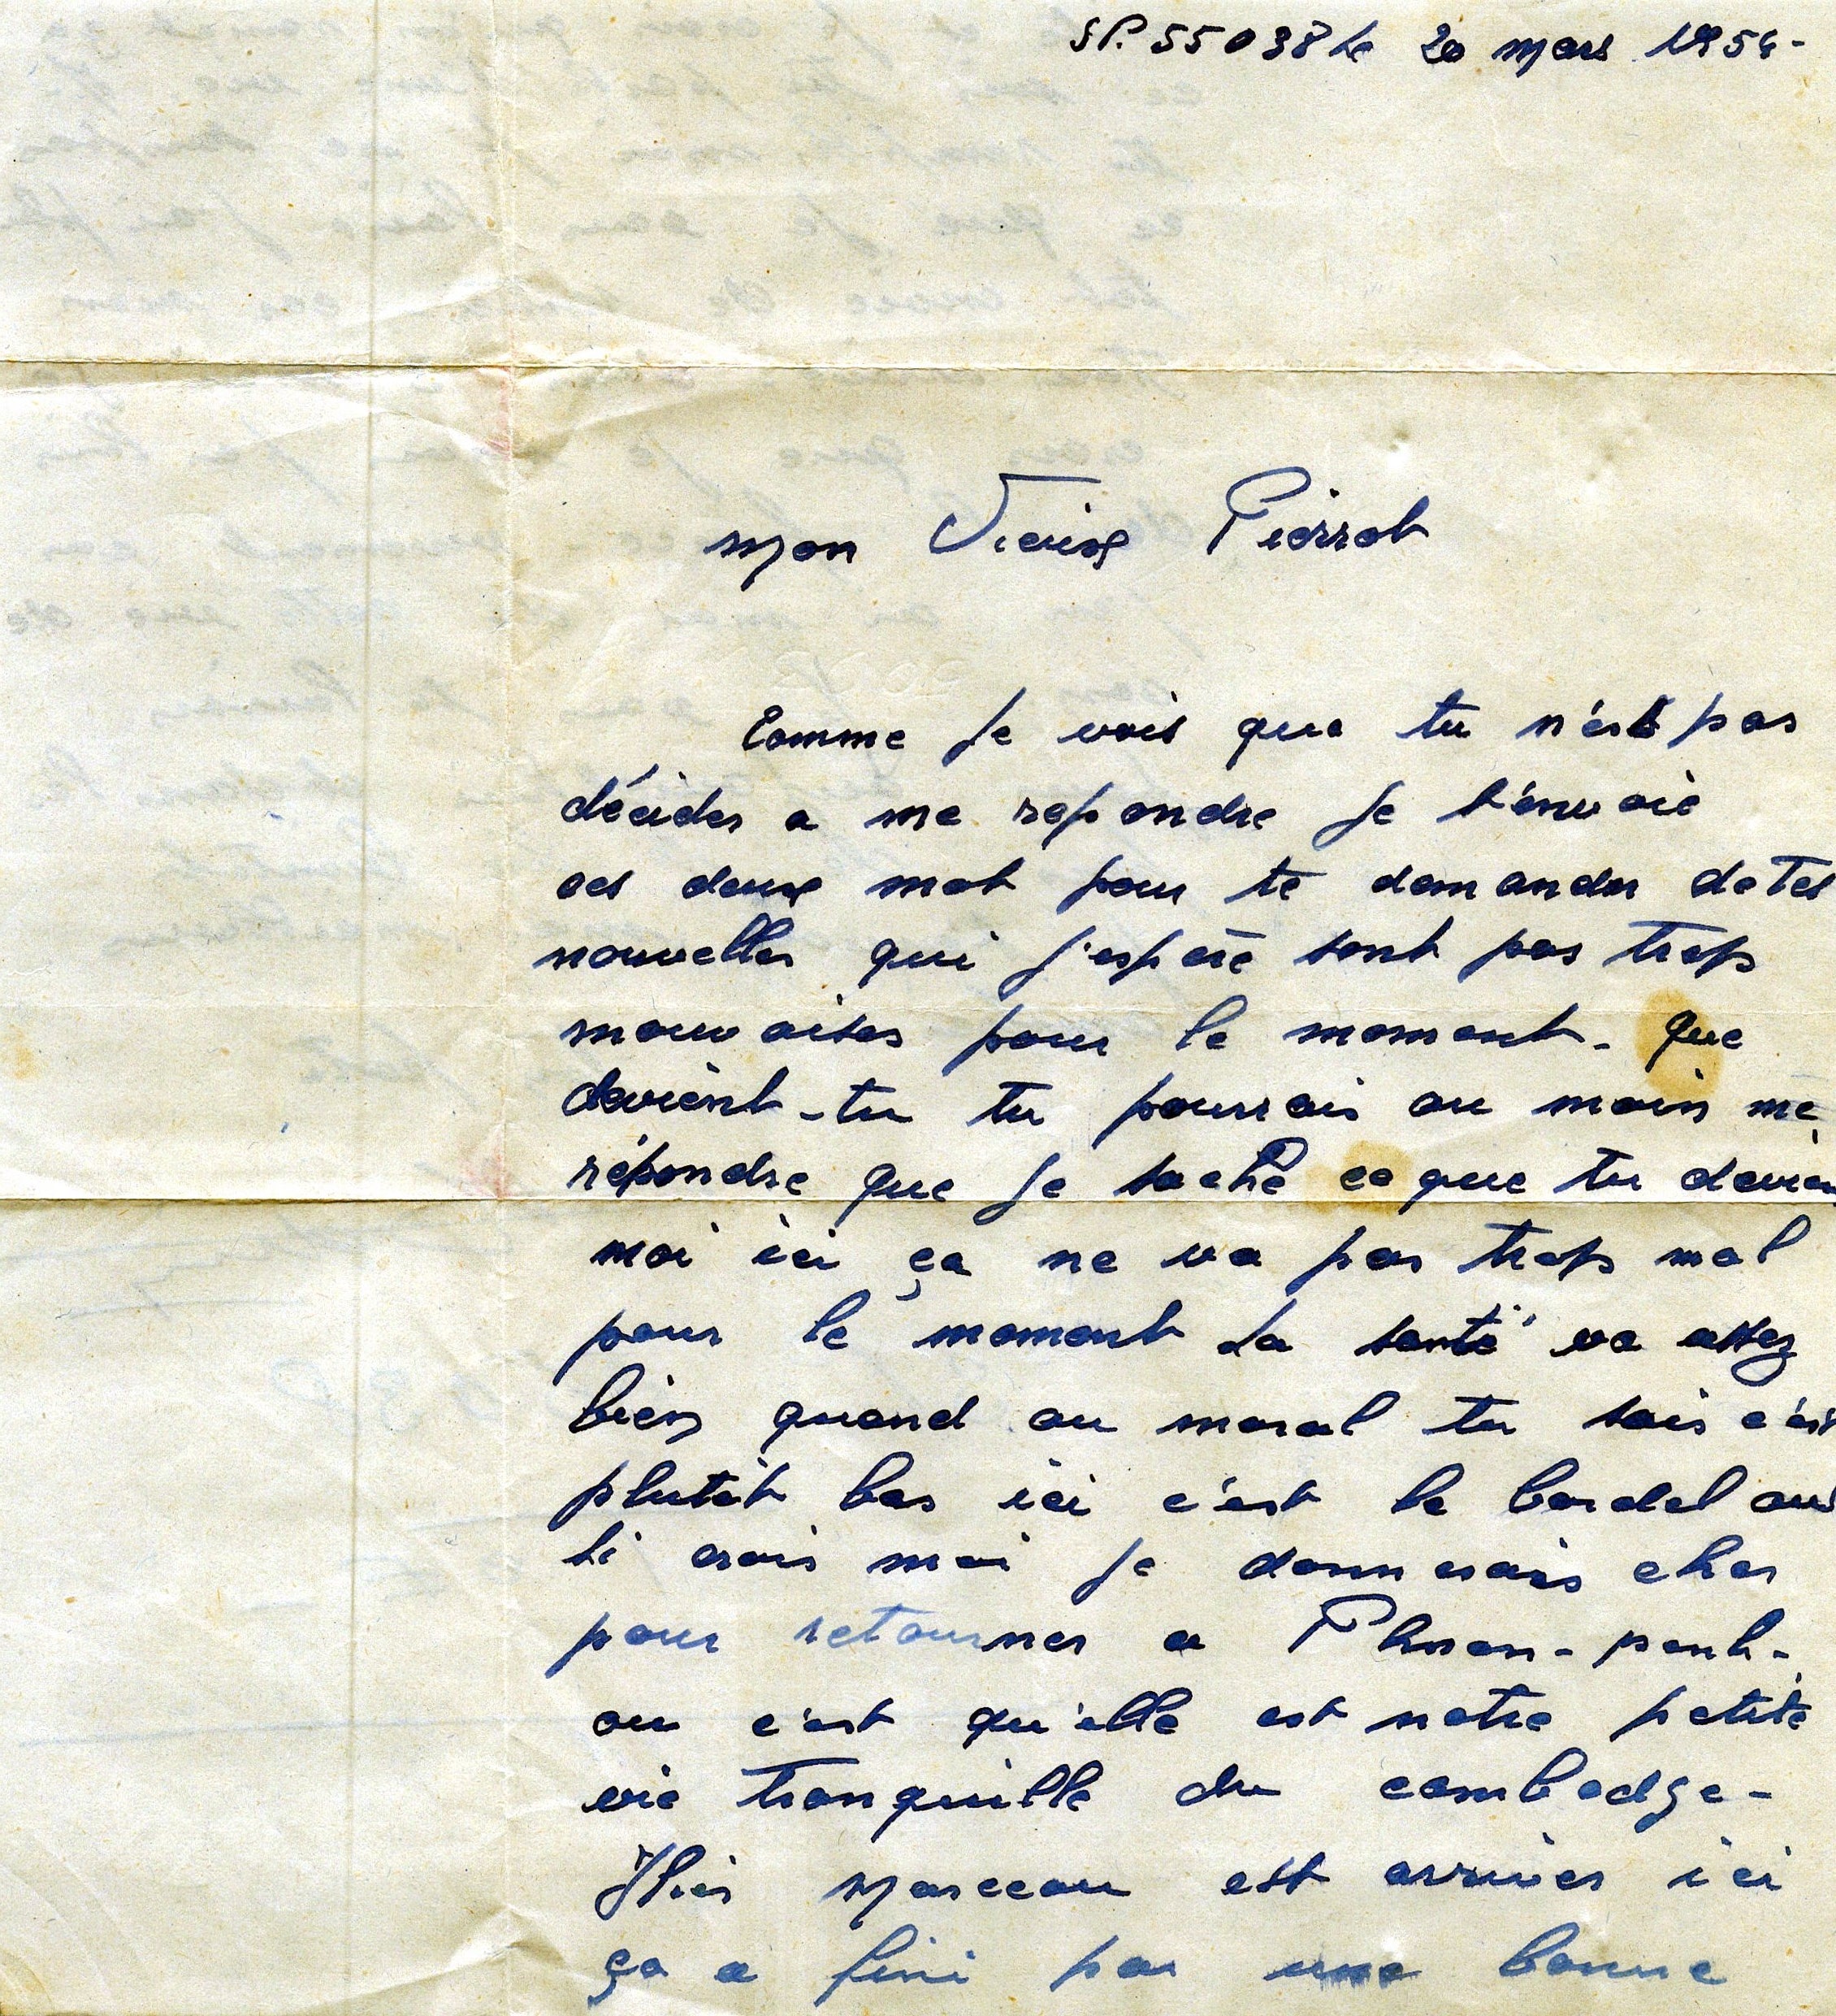 SP. 55038 le 20 mars 1954-
Mon Vieux Pierrot
Comme je vois que tu n'est pas
décider a me repondre je t'envoie
ces deux mot pour te demander de tes
nouvelles qui j'espère sont pas trop
mauvaises pour le moment - que
devient-tu tu pourrais au moin me
répondre que je sache ce que tu devien
moi ici ça ne va pas trop mal
pour le moment La santé va assez
bien quand au moral tu sais c'est
plutôt bas ici c'est le bordel aus
si crois moi je donnerais cher
pour retourner a Phnon-penh-
ou c'est qu'elle est notre petite
vie tranquille du cambodge-
Hier Marceau est arriver ici
ça a fini par une bonne